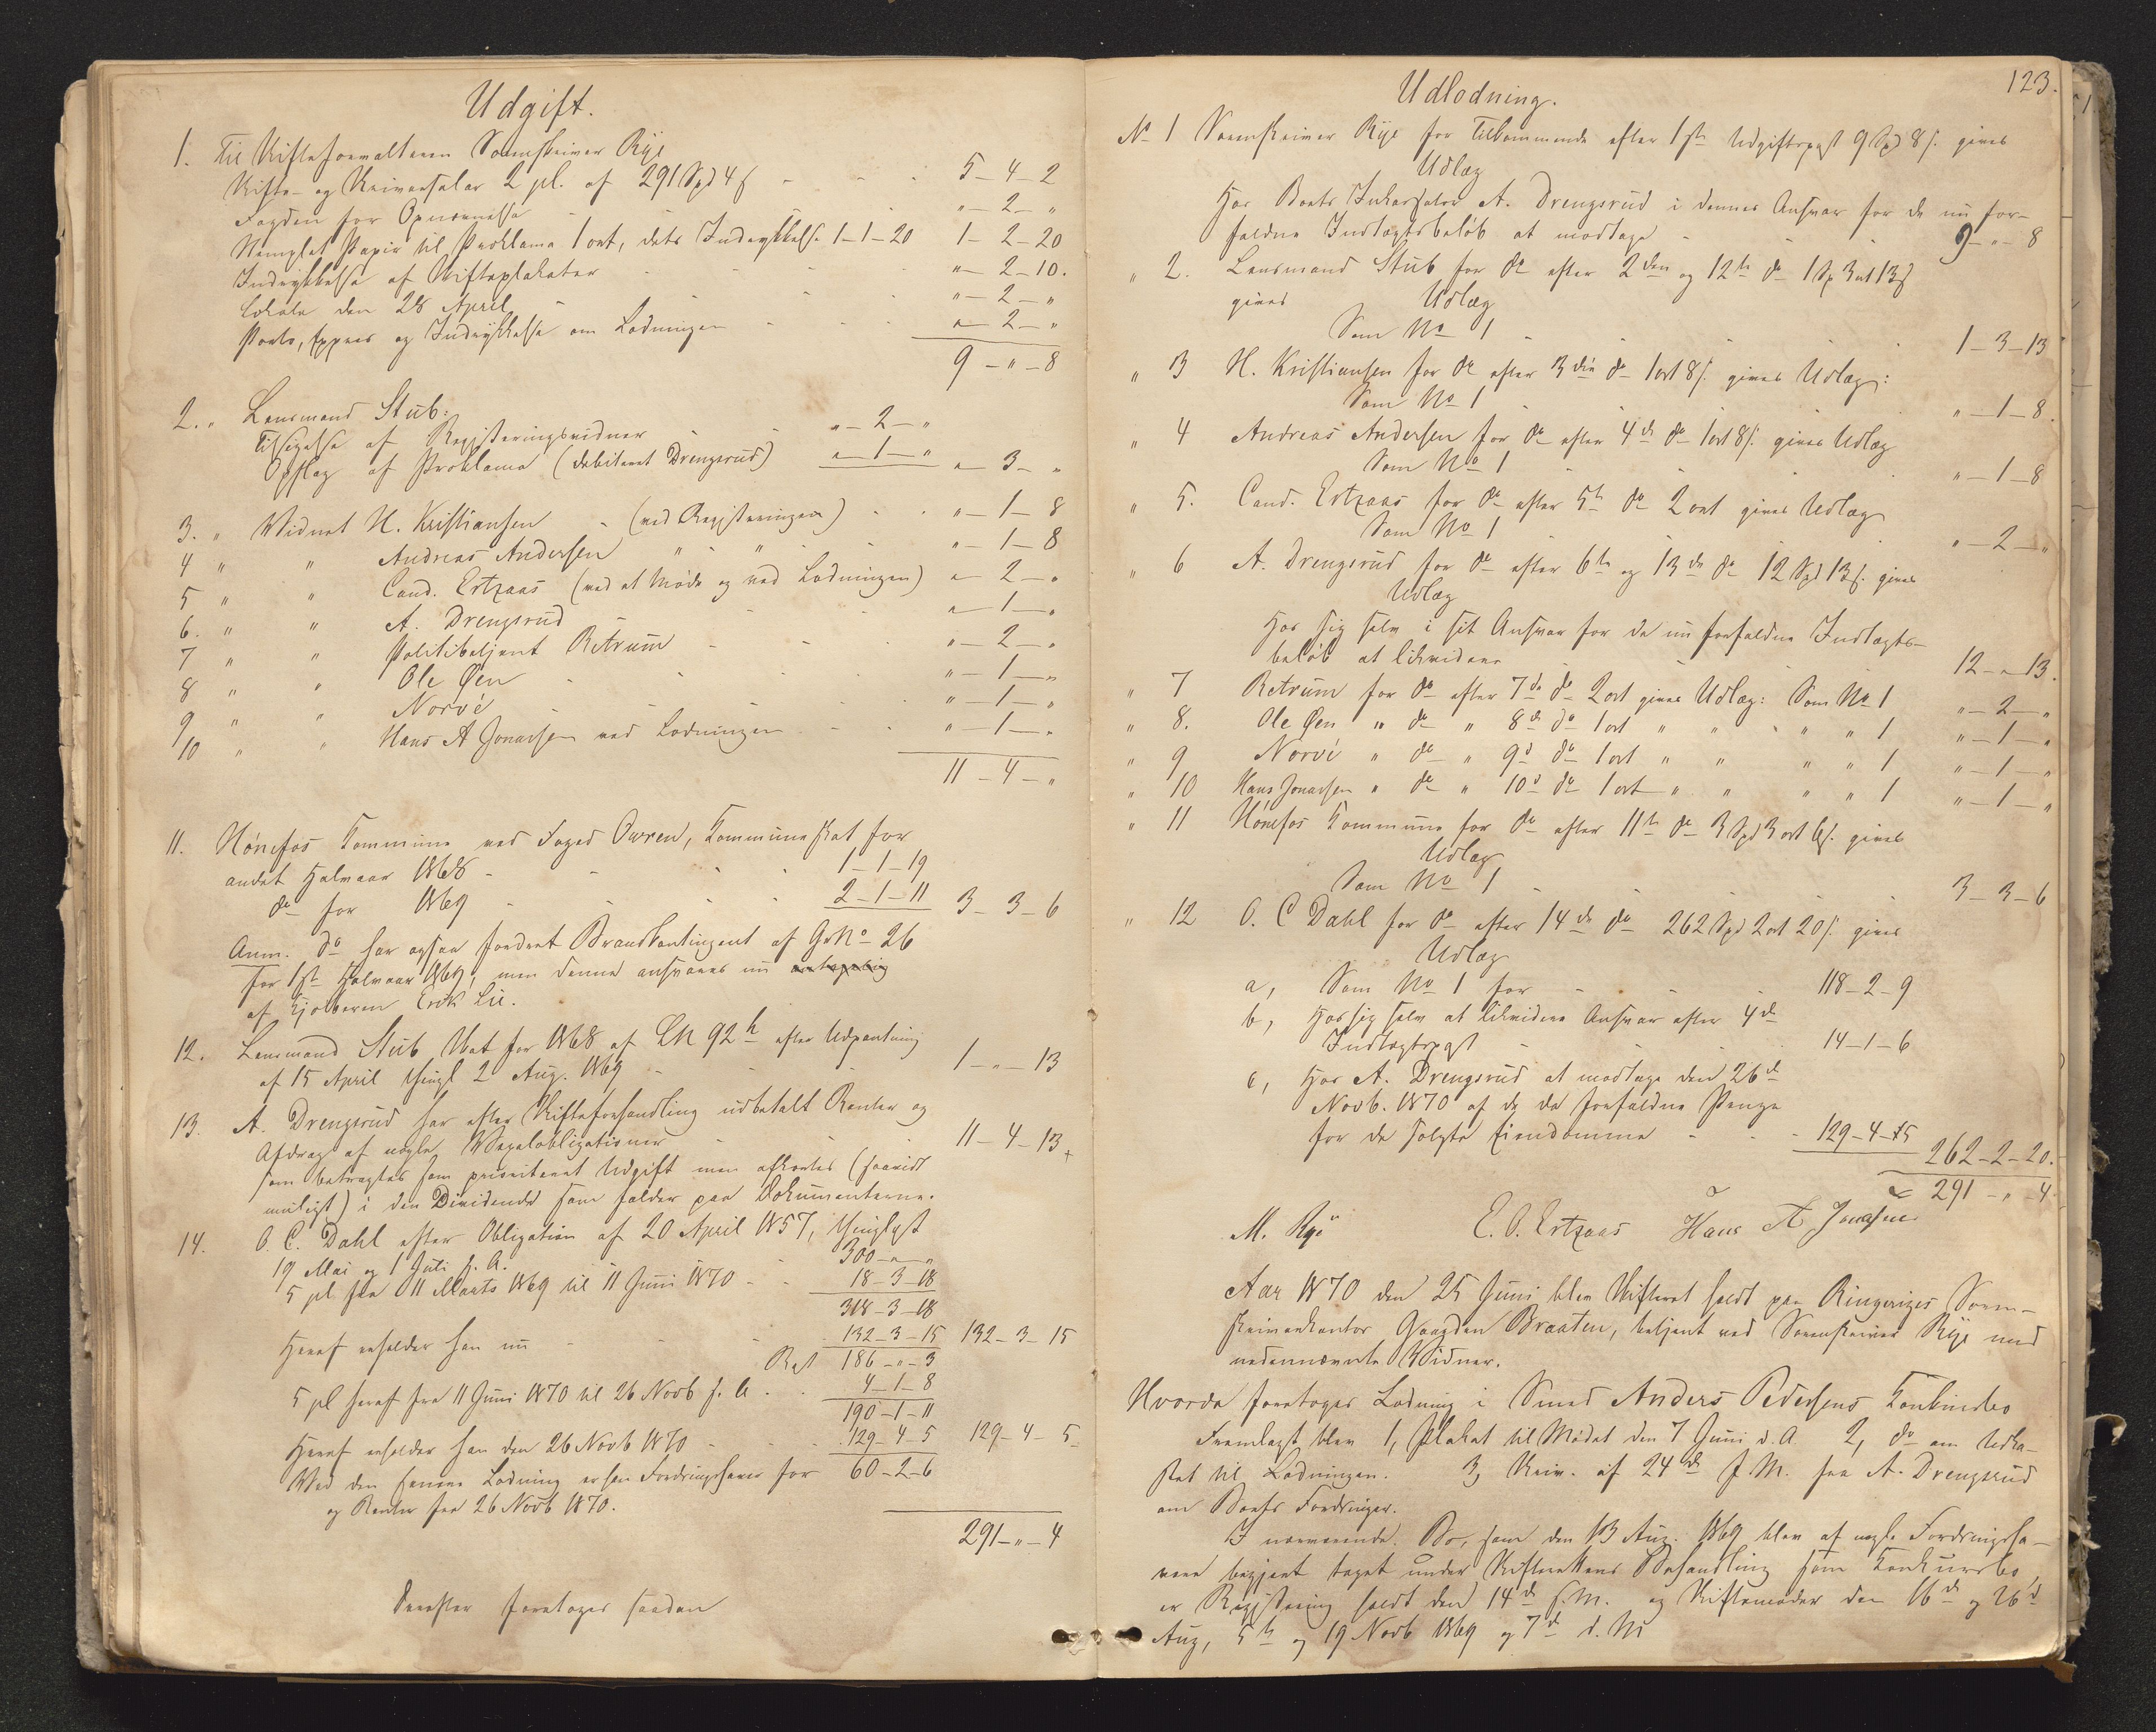 Udgift.
1. Til Skifteforvalteren Sorenskriver Rye
Skifte- og Skriversalær 2 pCt. af 291 Spd 4 ß - - - 5-4-2
Fogden for Opnævnelse - - „-2-„
Stemplet Papir til Proklama 1 ort, dets Indrykkelse 1-1-20 1-2-20
Indrykkelse af Skifteplakater - - „-2-10.
Lokale den 28 April - - „-2-„
Porto, Expres og Indrykkelse om Lodningen - - „-2-„
9-„-8
2. „ Lensmand Stub:
Tilsigelse af Registreringsvidner - - „-2-„
Opslag af Proklama (debiteret Drengsrud) „-1-„ „-3-„
3. „ Vidnet H. Kristiansen - (ved Registreringen) - - „-1-8
4 „ „ Andreas Andersen „ - „ - - „-1-8
5 „ „ Cand. Ertzaas (ved et Møde og ved Lodningen) „-2-„
6. „ „ A. Drengsrud - - „-1-„
7 „ „ Politibetjent Retrum - - „-2-„
8 „ „ Ole Øen - - „-1-„
9 „ „ Norvé - - „-1-„
10 „ „ Hans A Jonassen ved Lodningen - - „-1-„
11-4-„
11. Hønefos Kommune ved Foged Owren, Kommuneskat for
andet Halvaar 1868 - - 1-1-19
do for 1869 - - 2-1-11 3-3-6
Anm. do har ogsaa fordret Brandkontingent af Gr No 26
for 1ste Halvaar 1869, men denne ansvares nu
af Kjøberen Erik Lie.
12. Lensmand Stub Skat for 1868 af LN 92 h efter Udpantning
af 15 April thingl 2 Aug. 1869 - - 1-„-13
13. A. Drengsrud har efter Skifteforhandling udbetalt Renter og
Afdrag af nogle Vexelobligationer - - 11-4-13
som betragtes som prioriteret Udgift men afkortes (saavidt
muligt) i den Dividende som falder paa Dokumenterne.
14. O. C. Dahl efter Obligation af 20 April 1857, thinglyst
19 Mai og 1 Juli s. A. 300-„-„
5 pCt fra 11 Marts 1869 til 11 Juni 1870 - - 18-3-18
318-3-18
Heraf erholder han nu - - 132-3-15 132-3-15
Rest 186-„-3
5 pCt heraf fra 11 Juni 1870 til 26 Novb s. A. - - 4-1-8
190-1-11
Heraf erholder han den 26 Novb 1870 - - 129-4-5 129-4-5
Ved den senere Lodning er han Fordringshaver for 60-2-6
og Renter fra 26 Novb 1870.
291-„-4
Derefter foretoges saadan
123.
Udlodning.
No 1 Sorenskriver Rye for Tilkommende efter 1ste Udgiftspost 9 Spd 8 ß. gives
Udlæg
Hos Boets Inkassator A. Drengsrud i dennes Ansvar for de nu for-
faldne Indtægtsbeløb at modtage - - 9-„-8
„ 2. Lensmand Stub for do efter 2den og 12te do 1 Sp 3 ort 13 ß
gives Udlæg
Som No 1 - - 1-3-13
„ 3 H. Kristiansen for do efter 3die do 1 ort 8 ß. gives Udlæg:
Som No 1 - - „-1-8.
„ 4 Andreas Andersen for do efter 4de do 1 ort 8 ß. gives Udlæg
Som No 1 - - „-1-8
„ 5. Cand. Ertzaas for do efter 5te do 2 ort gives Udlæg
Som No 1 - - „-2-„
„ 6 A. Drengsrud for do efter 6te og 13de do 12 Spd 13 ß. gives
Udlæg
Hos sig selv i sit Ansvar for de nu forfaldne Indtægts-
beløb at likvidere - - 12-„-13.
„ 7 Retrum for do efter 7de do 2 ort gives Udlæg: Som No 1 „-2-„
„ 8. Ole Øen „ do „ 8de do 1 ort „ „ „ „ 1 „-1-„
„ 9 Norvé „ do „ 9d do 1 ort „ „ „ „ 1 „-1-„
„ 10 Hans Jonassen „ do „ 10d do 1 ort „ „ „ „ 1 „-1-„
„ 11 Hønefos Kommune for do efter 11te do 3 Spd 3 ort 6 ß. gives
Udlæg
Som No 1 - - 3-3-6
„ 12 O. C Dahl for do efter 14de do 262 Spd 2 ort 20 ß. gives
Udlæg
a, Som No 1 for - - 118-2-9
b, Hos sig selv at likvidere Ansvar efter 4de
Indtægtspost - - 14-1-6
c, Hos A. Drengsrud at modtage den 26d
Novb. 1870 af de da forfaldne Penge
for de solgte Eiendomme - - 129-4-5
262-2-20.
291-„-4.
M. Rye E. O. Ertzaas Hans A Jonassen
Aar 1870 den 25 Juni blev Skifteret holdt paa Ringeriges Soren-
skriverkontor Gaarden Braaten, betjent ved Sorenskriver Rye med
nedennævnte Vidner.
Hvorda foretoges Lodning i Smed Anders Pedersens Konkursbo
Fremlagt blev 1, Plakat til Mødet den 7 Juni d. A. 2, do om Udka-
stet til Lodningen. 3, Skriv. af 24de d. M. fra A. Drengsrud
om Boets Fordringer.
I nærværende Bo, som den 13 Aug. 1869 blev af nogle Fordringsha-
vere begjært taget under Skifterettens Behandling som Konkursbo,
er Registrering holdt den 14d s. M. og Skiftemøder den 16d og 26d
Aug, 5te og 19 Novb 1869 og 7d d. M